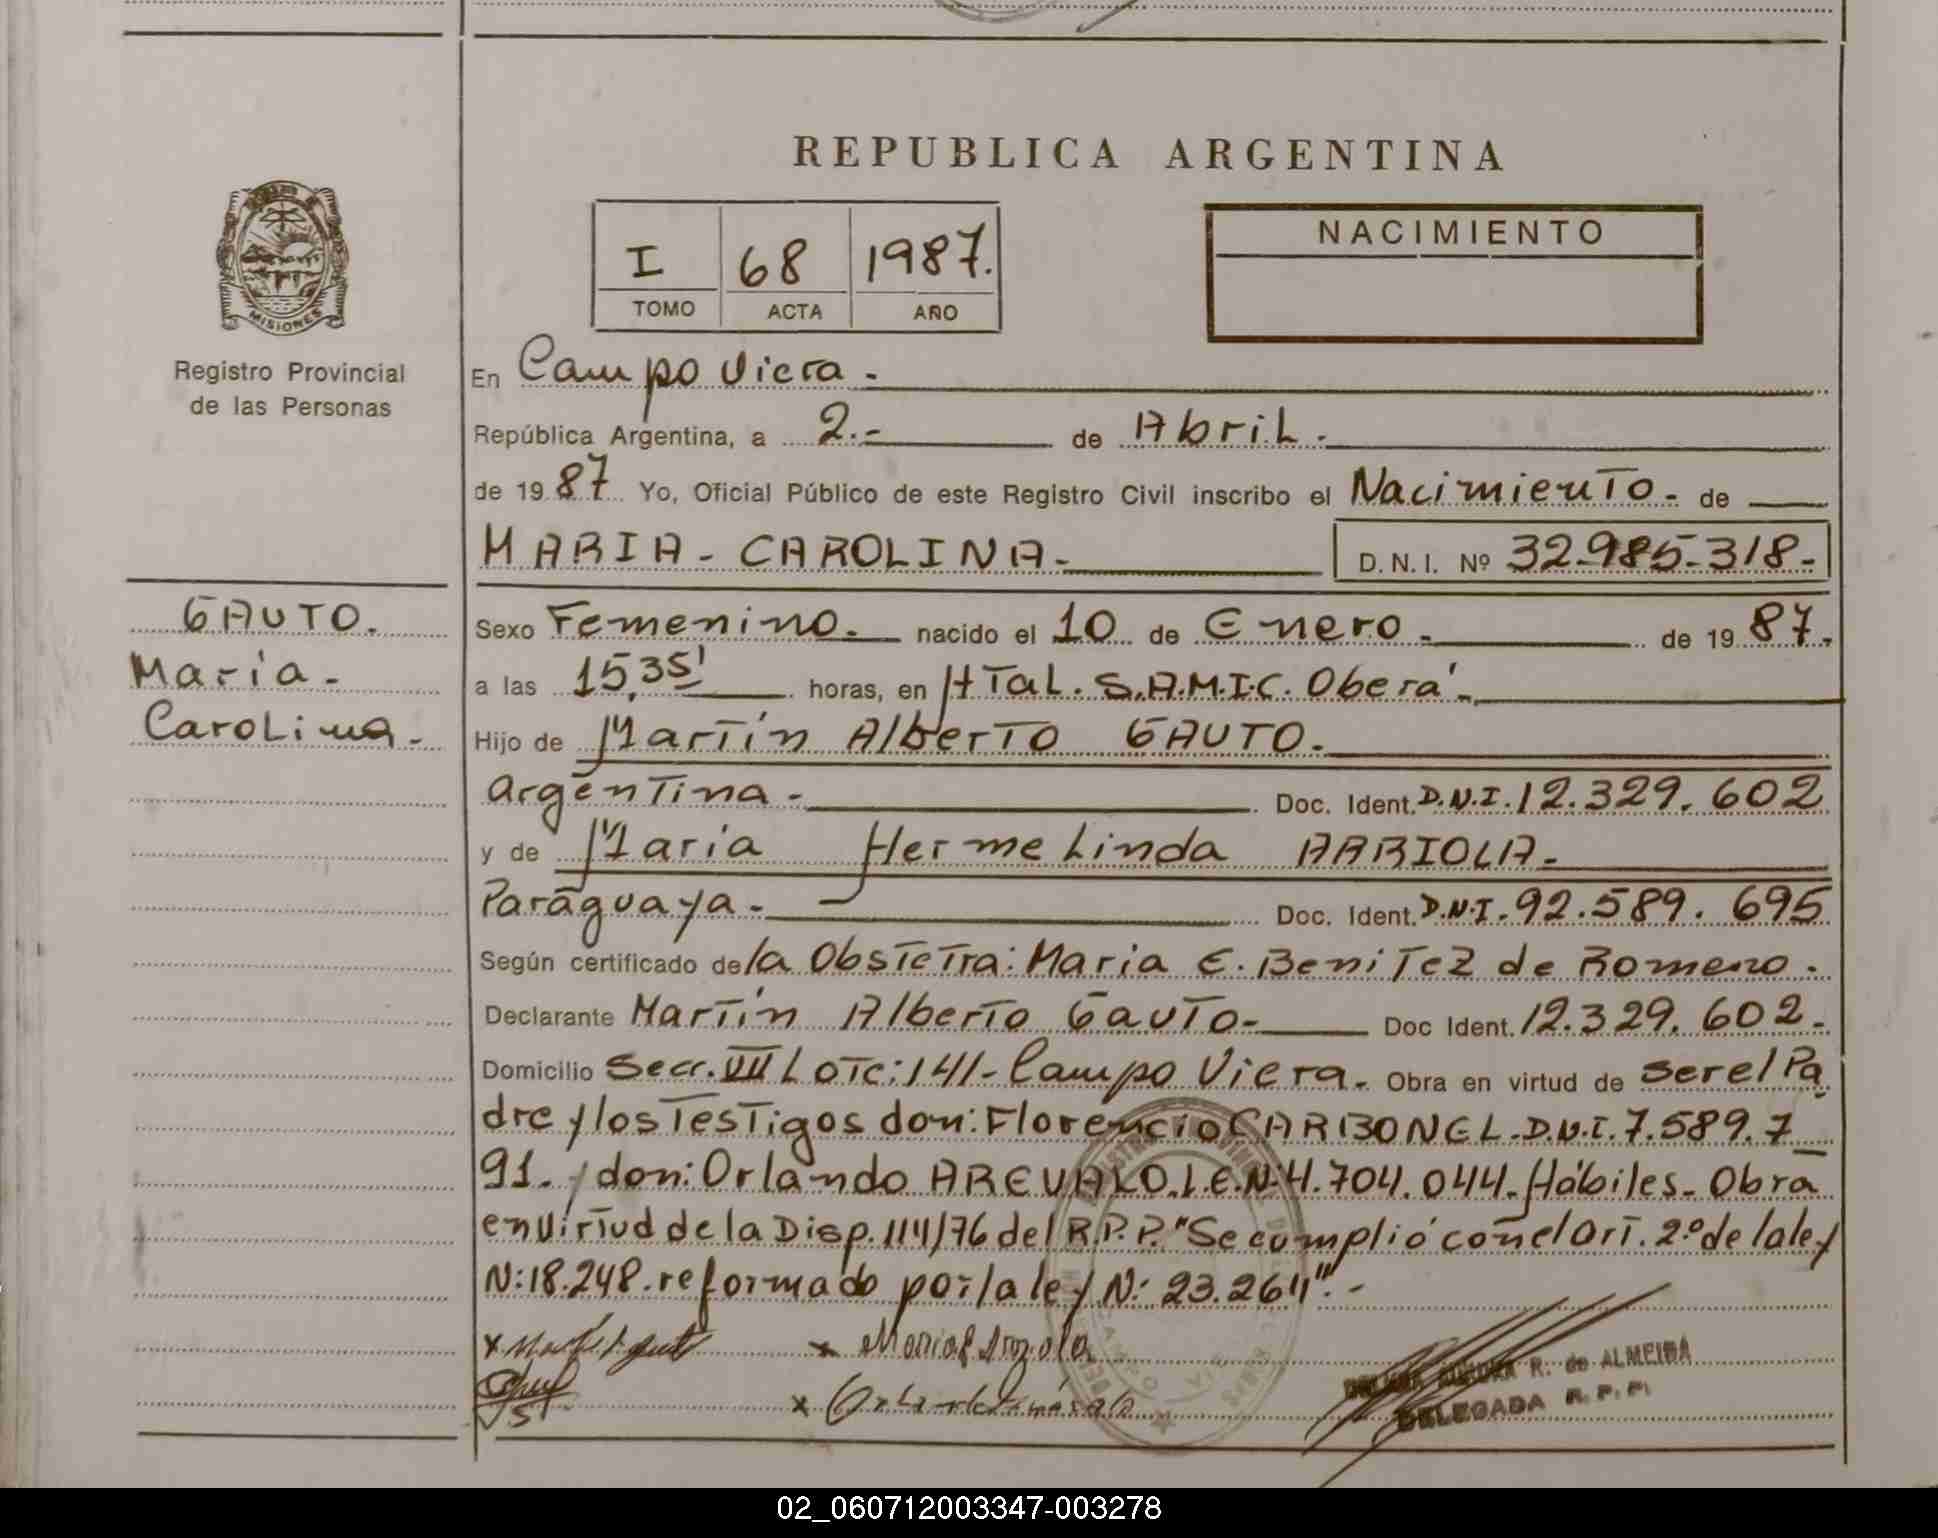 REPUBLICA ARGENTINA
I 68 1987.
TOMO ACTA AÑO
NACIMIENTO
MISIONES
Registro Provincial
de las Personas
En Campo Viera.
República Argentina, a 2.- de Abril.
de 1987 Yo, Oficial Público de este Registro Civil inscribo el Nacimiento. de
MARIA - CAROLINA- D.N.I. Nº 32.985.318-
GAUTO.
Maria-
Carolina-
Sexo Femenino. nacido el 10 de Enero. de 1987.
a las 15,35' horas, en HTal. S.A.M.I.C. Oberá.
Hijo de Martín Alberto GAUTO.
argentina- Doc. Ident. D.N.I. 12.329.602
y de Maria Hermelinda ARRIOLA-
Paraguaya- Doc. Ident. D.N.I. 92.589.695
Según certificado de la Obstetra: Maria E. Benitez de Romero.
Declarante Martín Alberto Gauto- Doc Ident. 12.329.602-
Domicilio Secc. VIII Lote: 141- Campo Viera. Obra en virtud de ser el Pa
dre y los Testigos don: Florencio CARBONEL. D.N.I. 7.589.7
91. y don: Orlando AREVALO. L.E.N: 4.704.044. Hábiles. Obra
en virtud de la Disp. 114/76 del R.P.P. "Se cumplió con el Art. 2º de la ley
N: 18.248. reformado por la ley N: 23.264".-
R. de ALMEIDA
DELEGADA R. P. P.
02_060712003347-003278